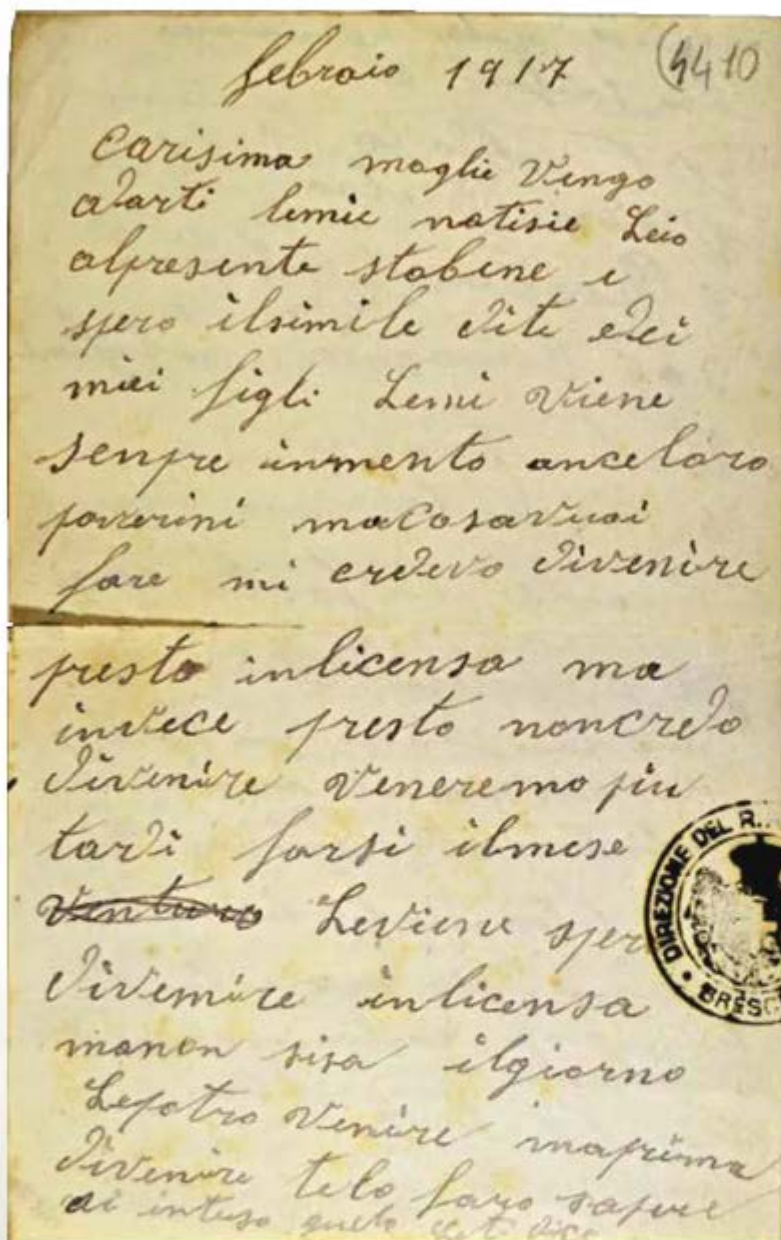 febraio 1917 (4410
Carisima moglie Vengo
adarti lemie notisie Leio
alpresente stobene e
spero ilsimile dite edei
miei figli Lemi viene
senpre inmento anceloro
poverini maCosavuoi
fare mi credevo divenire
presto inlicensa ma
invece presto noncredo
divenire Veneremo piu
tardi forsi ilmese
Venturo Leviene sper
divenire inlicensa
manon sisa ilgiorno
Lepotro Venire maprima
divenire telo faro sapere
ai inteso quelo dice
DIREZIONE DEL R.
BRESC